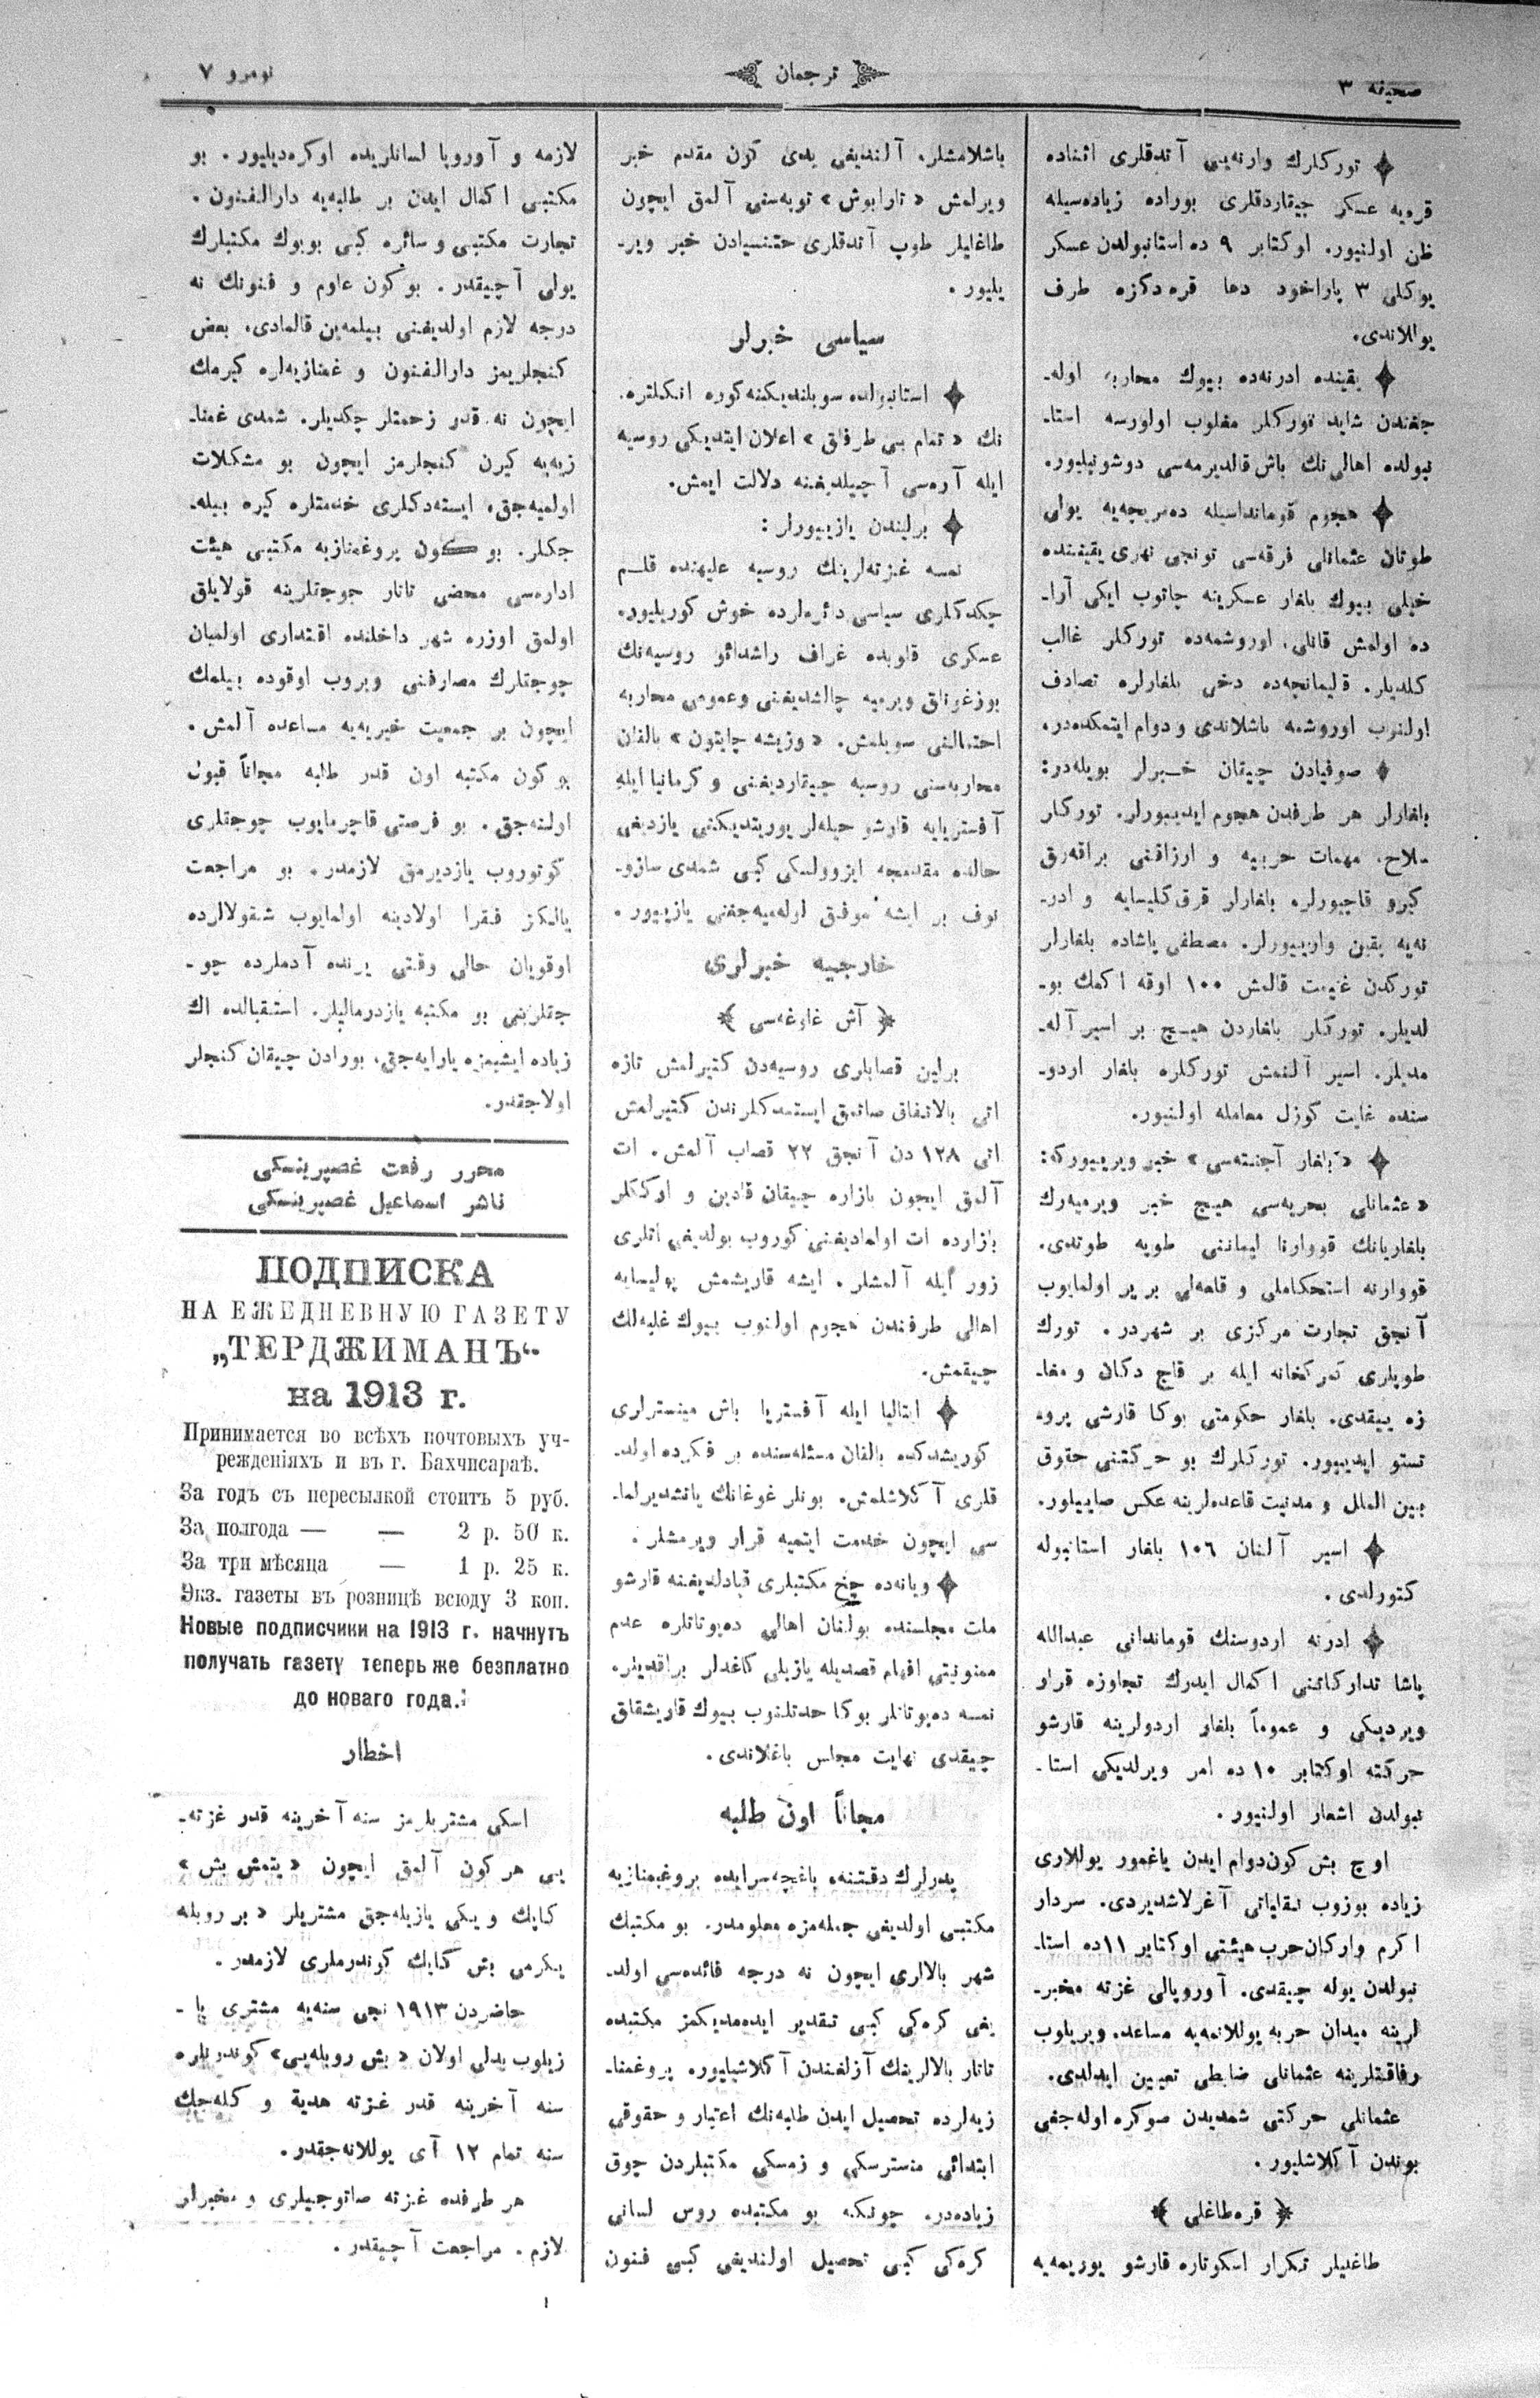 صحیفه ٣
ترجمان
نومرو ٧
توركلرك وارنه‌یی آتدقلری اثناده
قریه عسكر چیقاردقلری بوراده زیاده‌سیله
ظن اولنیور. اوكتابر ٩ ده استانبولدن عسكر
یوكلی ٣ پاراخود دها قره دكزه طرف
یوللاندی.
یقینده ادرنه‌ده بیوك محاربه اوله‌ـ
جغندن شاید توركلر مغلوب اولورسه استا‌ـ
نبولده اهالی‌نك باش قالدیرمه‌سی دوشونیلیور.
هجوم قومانداسیله ده‌مریحه‌یه یولی
طوتان عثمانلی فرقه‌سی تونجی نهری یقیننده
خیلی بیوك بلغار عسكرینه چاتوب ایكی آرا‌ـ
ده اولمش قانلی اوروشمه‌ده توركلر غالب
كلدیلر. قلیمانچه‌ده دخی بلغارلره تصادف
اولنوب اوروشمه باشلاندی و دوام ایتمكده‌در.
صوفیادن چیقان خبرلر بویله‌در:
بلغارلر هر طرفدن هجوم ایدییورلر. توركلر
سلاح، مهمات حربیه و ارزاقنی براقه‌رق
كیرو قاچیورلر. بلغارلر قرق‌كلیسایه و ادر‌ـ
نه‌یه یقین وارییورلر. مصطفی پاشاده بلغارلر
توركدن غنیمت قالمش ١٠٠ اوقه اكمك بو‌ـ
لدیلر. توركلر بلغاردن هیچ بر اسیر آله‌ـ
مدیلر. اسیر آلنمش توركلره بلغار اردو‌ـ
سنده غایت كوزل معامله اولنیور.
«بلغار آجنته‌سی» خبر ویرییوركه:
«عثمانلی بحریه‌سی هیچ خبر ویرمیه‌رك
بلغاریانك قووارنا لیماننی طوپه طوتدی.
قووارنه استحكاملی و قلعه‌لی بر یر اولمایوب
آنجق تجارت مركزی بر شهردر. تورك
طوپلری كمركخانه ایله بر قاچ دكان و مغا‌ـ
زه ییقدی. بلغار حكومتی بوكا قارشی پرو‌ـ
تستو ایدییور. توركلرك بو حركتنی حقوق
بین الملل و مدنیت قاعده‌لرینه عكس صاییلور.
اسیر آلنان ١٠٦ بلغار استانبوله
كتورلدی.
ادرنه اردوسنك قوماندانی عبدالله
پاشا تداركاتنی اكمال ایدرك تجاوزه قرار
ویردیكی و عموماً بلغار اردولرینه قارشو
حركته اوكتابر ١٠ ده امر ویرلدیكی استا‌ـ
نبولدن اشعار اولنیور.
اوچ بش كون دوام ایدن یاغمور یوللاری
زیاده بوزوب نقلیاتی آغرلاشدیردی. سردار
اكرم واركان حرب هیئتی اوكتابر ١١ده استا‌ـ
نبولدن یوله چیقدی. آوروپالی غزته مخبر‌ـ
لرینه میدان حربه یوللانمه‌یه مساعده ویریلوب
رفاقتلرینه عثمانلی ضابطی تعیین ایدلدی.
عثمانلی حركتی شمدیدن صوكره اوله‌جغی
بوندن آكلاشلیور.
﴿ قره‌طاغلی ﴾
طاغلیلر تكرار اسكوتاره قارشو یوریمه‌یه
باشلامشلر. آلندیغی یدی كون مقدم خبر
ویرلمش «تارابوش» توبه‌سنی آلمق ایچون
طاغلیلر طوپ آتدقلری حتنسیادن خبر ویر‌ـ
یلیور.
سیاسی خبرلر
استانبولده سویلندیكنه كوره انكلتره‌ـ
نك «تمام بی طرفلق» اعلان ایتدیكی روسیه
ایله آره‌سی آچیلدیغنه دلالت ایمش.
برلیندن یازییورلر:
نمسه غزته‌لرینك روسیه علیهنده قلم
چكدكلری سیاسی دائره‌لرده خوش كوریلیور.
عسكری قلوبده غراف راشدائو روسیه‌نك
بوزغونلق ویرمیه چالشدیغنی وعمومی محاربه
احتمالنی سویلمش. «وزیشه چایتون» بالقان
محاربه‌سنی روسیه چیقاردیغنی و كرمانیا ایله
آفستریایه قارشو حیله‌لر یوریتدیكنی یازدیغی
حالده مقدمجه ایزوولسكی كبی شمدی سازو‌ـ
نوف بر ایشه موفق اوله‌میه‌جغنی یازییور.
خارجیه خبرلری
﴿ آش غاوغه‌سی ﴾
برلین قصابلری روسیه‌دن كتیرلمش تازه
اتی بالاتفاق صاتمق ایستمدكلرندن كتیرلمش
اتی ١٢٨ دن آنجق ٢٢ قصاب آلمش. ات
آلمق ایچون بازاره چیقان قادین و ارككلر
بازارده ات اولمادیغنی كوروب بولدیغی اتلری
زور ایله آلمشلر. ایشه قاریشمش پولیسایه
اهالی طرفندن هجوم اولنوب بیوك غلبه‌لك
چیقمش.
ایتالیا ایله آفستریا باش مینسترلری
كوریشدكده بالقان مسئله‌سنده بر فكرده اولد‌ـ
قلری آكلاشلمش. بونلر غوغانك یاتشدیرلما‌ـ
سی ایچون خدمت ایتمیه قرار ویرمشلر.
ویانه‌ده چخ مكتبلری قپادلدیغنه قارشو
ملت مجلسنده بولنان اهالی ده‌پوتاتلره عدم
ممنونیتی افهام قصدیله یازیلی كاغدلر براقدیلر.
نمسه ده‌پوتاتلر بوكا حدتلنوب بیوك قاریشقلق
چیقدی نهایت مجلس باغلاندی.
مجاناً اون طلبه
پدرلرك دقتنه، باغچه‌سرایده پروغیمنازیه
مكتبی اولدیغی جمله‌مزه معلومدر. بو مكتبك
شهر بالالری ایچون نه درجه فائده‌سی اولد‌ـ
یغی كره‌كی كبی تقدیر ایده‌مدیكمز مكتبده
تاتار بالالرینك آزلغندن آكلاشیلیور. پروغمنا‌ـ
زیه‌لرده تحصیل ایدن طلبه‌نك اعتبار و حقوقی
ابتدائی منسترسكی و زمسكی مكتبلردن چوق
زیاده‌در. چونكه بو مكتبده روس لسانی
كره‌كی كبی تحصیل اولندیغی كبی فنون
لازمه و آوروپا لسانلریده اوكره‌دیلیور. بو
مكتبی اكمال ایدن بر طلبه‌یه دارالفنون،
تجارت مكتبی و سائره كبی بویوك مكتبلرك
یولی آچیقدر. بو كون علوم و فنونك نه
درجه لازم اولدیغنی بیلمه‌ین قالمادی. بعض
كنجلریمز دارالفنون و غمنازیه‌لره كیرمك
ایچون نه قدر زحمتلر چكدیلر. شمدی غمنا‌ـ
زیه‌یه كیرن كنجلرمز ایچون بو مشكلات
اولمیه‌جق، ایسته‌دكلری خدمتلره كیره بیله‌ـ
جكلر. بو كون پروغمنازیه مكتبی هیئت
اداره‌سی محضی تاتار جوجقلرینه قولایلق
اولمق اوزره شهر داخلنده اقتداری اولمیان
چوجقلرك مصارفنی ویروب اوقوده بیلمك
ایچون بر جمعیت خیریه‌یه مساعده آلمش.
بو كون مكتبه اون قدر طلبه مجاناً قبول
اولنه‌جق. بو فرصتی قاچرمایوب چوجقلری
كوتوروب یازدیرمق لازمدر. بو مراجعت
یالكز فقرا اولادینه اولمایوب شقولالرده
اوقویان حالی وقتی یرنده آدملرده چو‌ـ
جقلرینی بو مكتبه یازدرمالیلر. استقبالده اك
زیاده ایشیمزه یارایه‌جق، بورادن چیقان كنجلر
اولاجقدر.
محرر رفعت غصپرینسكی
ناشر اسماعیل غصپرینسكی
ПОДПИСКА
НА ЕЖЕДНЕВНУЮ ГАЗЕТУ
„ТЕРДЖИМАНЪ“
на 1913 г.
Принимается во всѣхъ почтовыхъ уч-
режденіяхъ и въ г. Бахчисараѣ.
За годъ съ пересылкой стоитъ 5 руб.
За полгода — — 2 р. 50 к.
За три мѣсяца — 1 р. 25 к.
Экз. газеты въ розницѣ всюду 3 коп.
Новые подписчики на 1913 г. начнутъ
получать газету теперь же безплатно
до новаго года.
اخطار
اسكی مشتریلرمز سنه آخرینه قدر غزته‌ـ
یی هر كون آلمق ایچون «یتمش بش»
كاپك و یكی یازیله‌جق مشتریلر «بر روبله
یكرمی بش كاپك كوندرملری لازمدر.
حاضردن ١٩١٣ نجی سنه‌یه مشتری یا‌ـ
زیلوب بدلی اولان «بش روبله‌یی» كوندرنلره
سنه آخرینه قدر غزته هدیة و كله‌جك
سنه تمام ١٢ آی یوللانه‌جقدر.
هر طرفده غزته صاتوجیلری و مخبرلر
لازم. مراجعت آچیقدر.